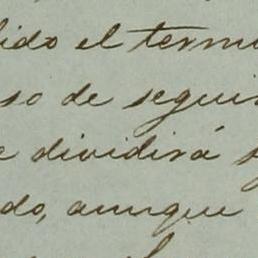 ido el termi
so de seguir
e dividirá s
do, aunque